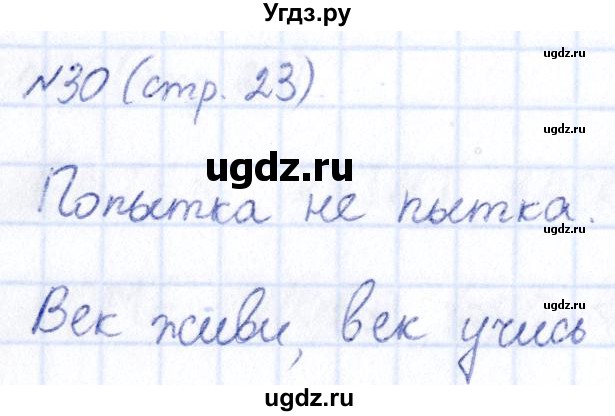 Угдз.ру
ugdz.ru
№30 (стр. 23)
ugdz.ru
ugdz.ru
ugdz.ru
Попытка не пытка.
ugdz.ru
ugdz.ru
Век живи, век учись
ugdz.ru